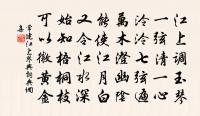 江上調玉琴
一弦清一心
泠泠七弦遍
萬木澄幽陰
能使江月白
又令江水深
始知梧桐枝
可以徽黃金
常建江上琴興